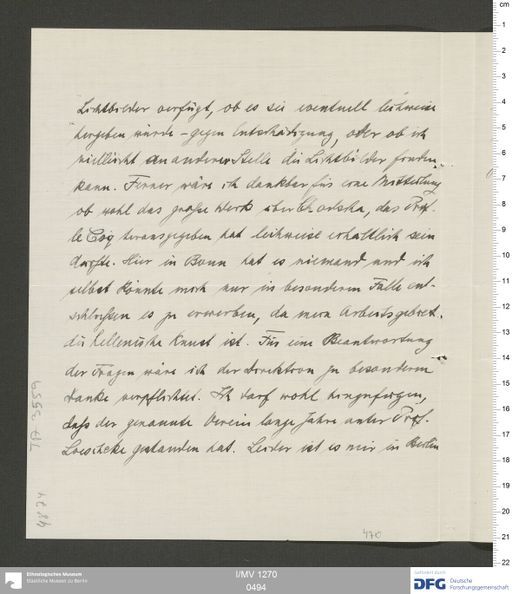 Lichtbilder verfügt, ob es sie eventuell leihweise
hergeben würde - gegen Entschädigung, oder ob ich
vielleicht an anderer Stelle die Lichtbilder finden
kann. Ferner wäre ich dankbar für eine Mitteilung
ob wohl das große Werk über Chotscho, das Prof.
le Coq herausgegeben hat leihweise erhältlich sein
dürfte. Hier in Bonn hat es niemand und ich
selbst könnte mich nur in besonderem Falle ent-
schließen es zu erwerben, da mein Arbeitsgebiet
die hellenische Kunst ist. Für eine Beantwortung
der Fragen wäre ich der Direktion zu besonderem
Danke verpflichtet. Ich darf wohl hinzufügen,
daß der genannte Verein lange Jahre unter Prof.
Loeschcke gestanden hat. Leider ist es mir in Berlin
470
Ethnologisches Museum
Staatliche Museen zu Berlin
I/MV 1270
0494
gefördert durch
DFG Deutsche
Forschungsgemeinschaft
cm
1
2
3
4
5
6
7
8
9
10
11
12
13
14
15
16
17
18
19
20
21
22